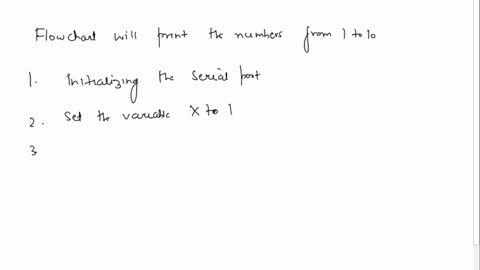 Flowchart will print the numbers from 1 to 10
1. Initializing the serial port
2. Set the variable X to 1
3